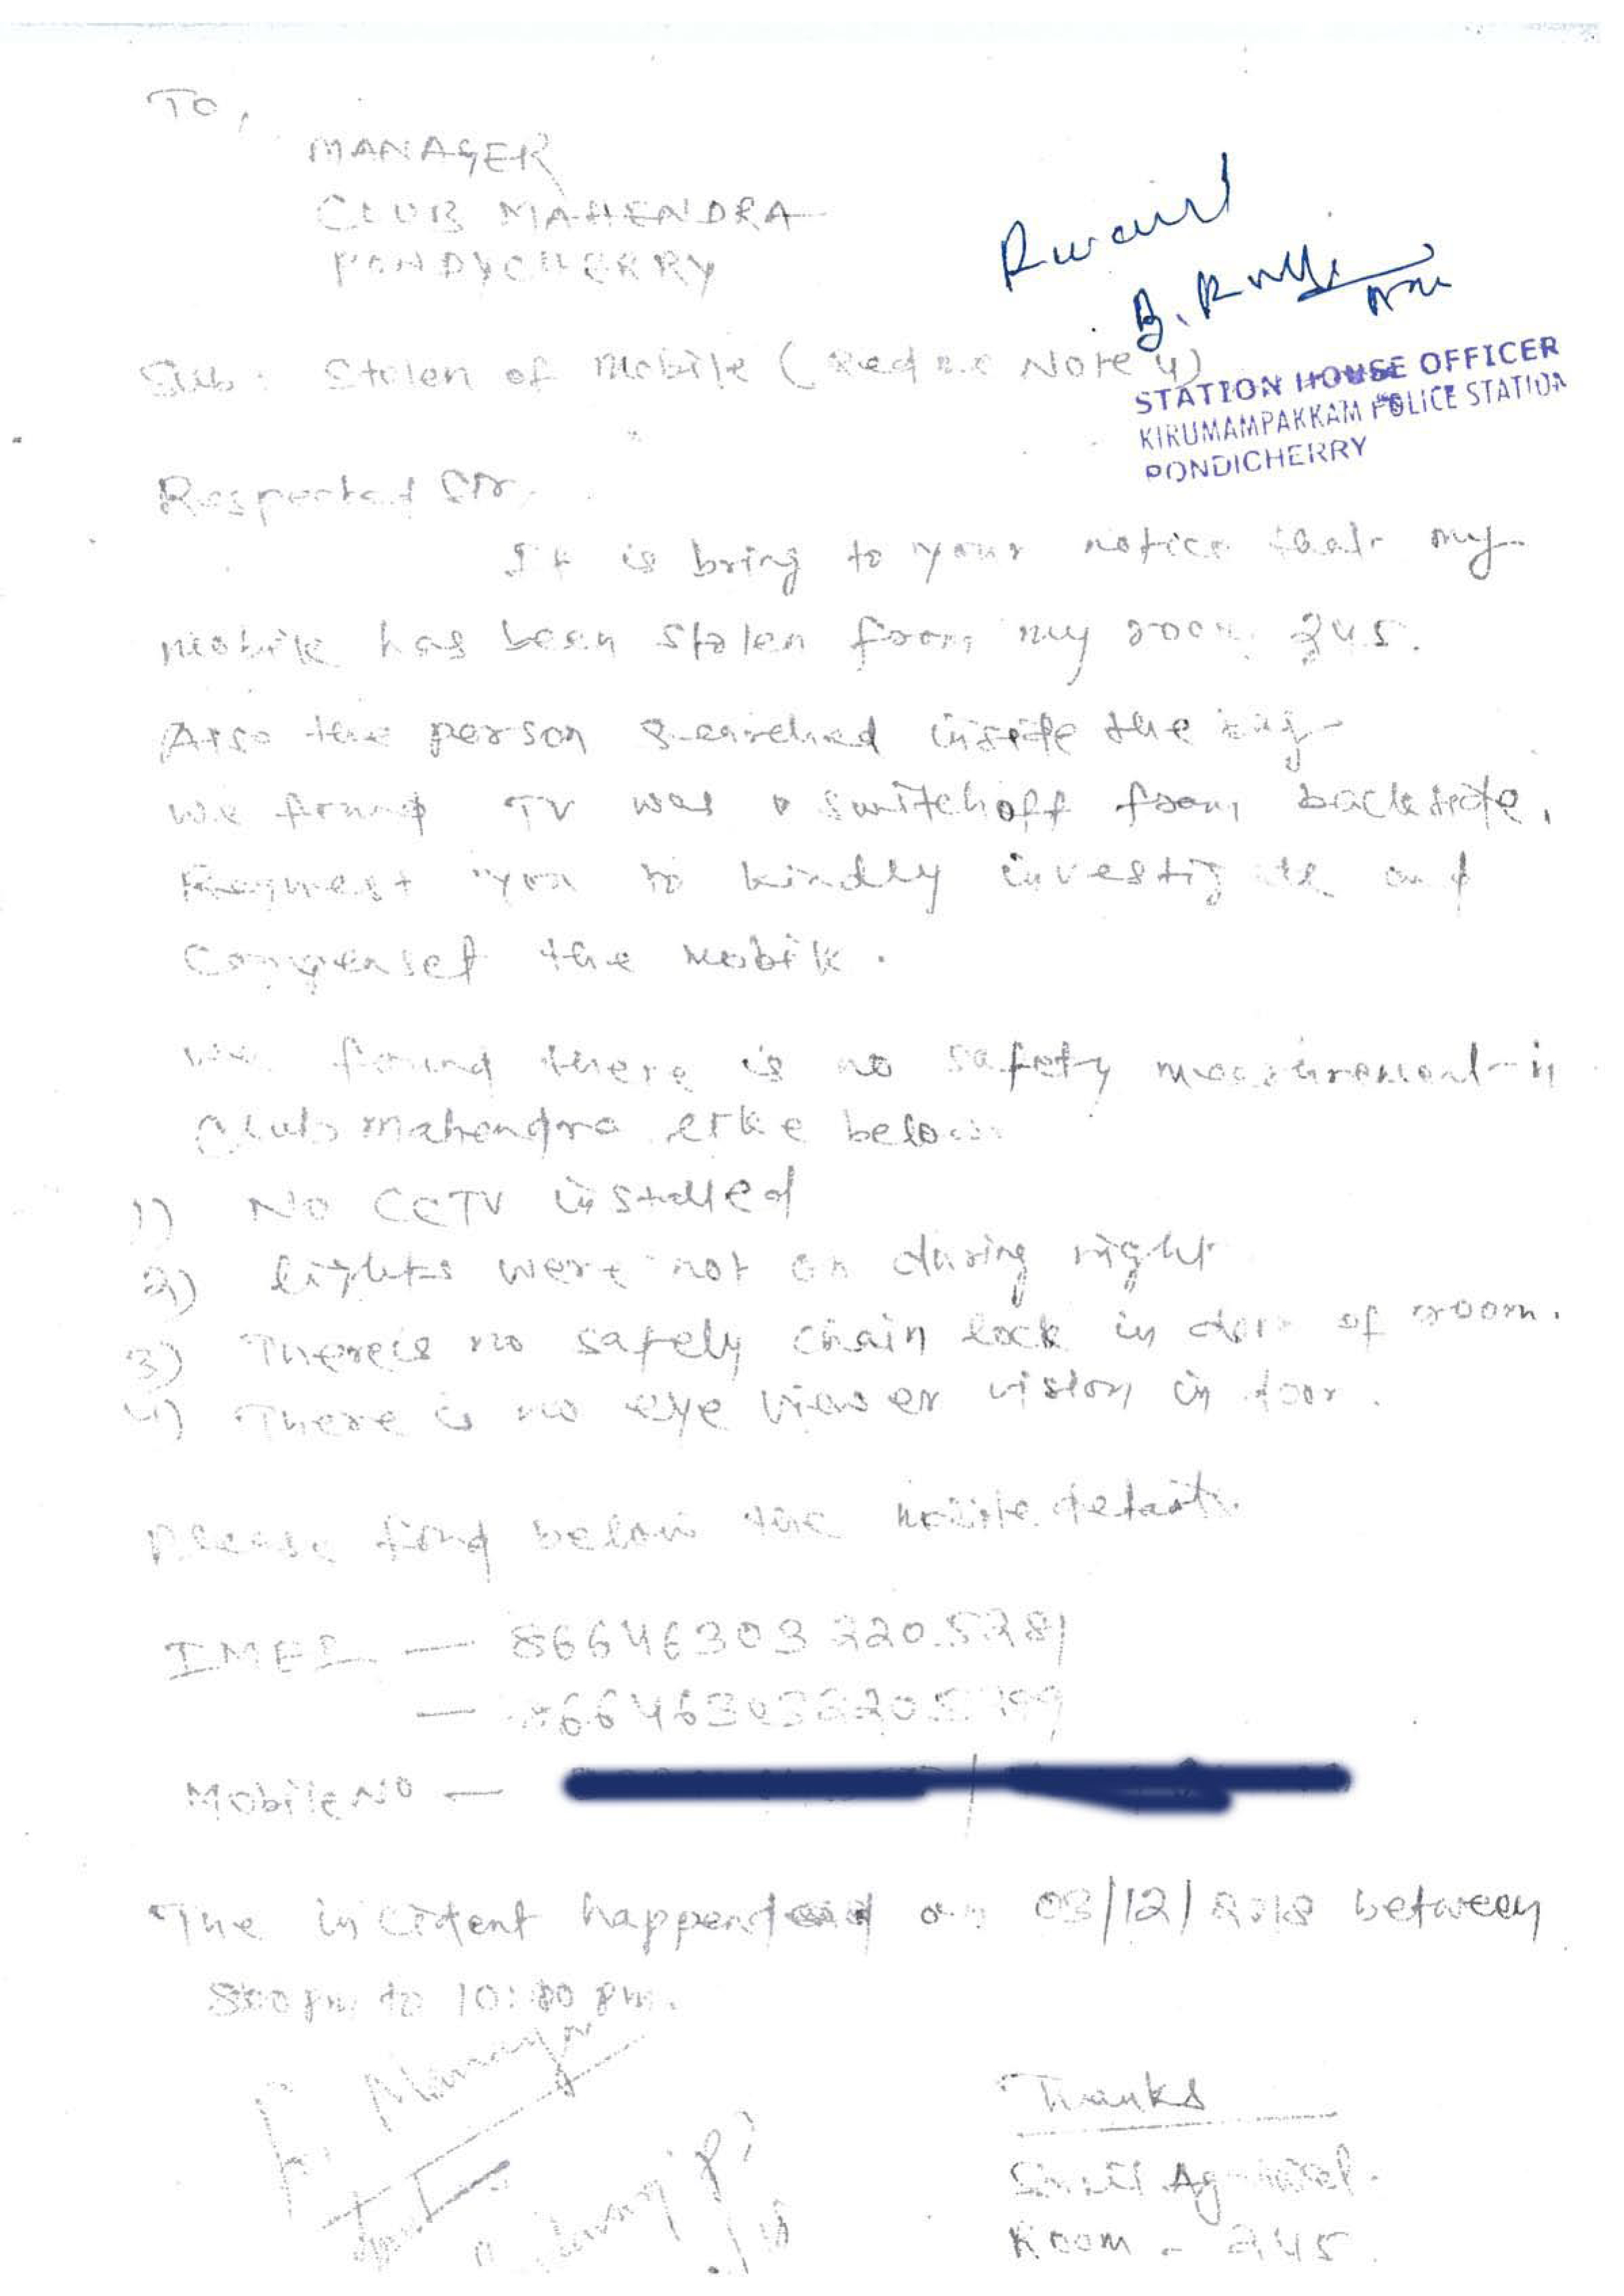 TO,
MANAGER
CLUB MAHENDRA
PONDYCHERRY
Received
B.
STATION HOUSE OFFICER
KIRUMAMPAKKAM POLICE STATION
PONDICHERRY
Sub: Stolen of Mobile (Redme Note 4)
Respected Sir,
It is bring to your notice that my
mobile has been stolen from my room 245.
Also the person searched inside the bag
We found TV was switchoff from backside.
Request you to kindly investigate and
Compenset the mobile.
We found there is no safety measurement in
Club mahendra like below
1) NO CCTV installed
2) lights were not on during night
3) There is no safely chain lock in door of room.
4) There is no eye viewer vision in door.
Please find below the mobile details.
IMEI - 866463033205281
- 866463033205
Mobile No -
The incident happend on 03/12/2018 between
8:00 pm to 10:00 pm.
Thanks
Agrawal.
Room - 245.